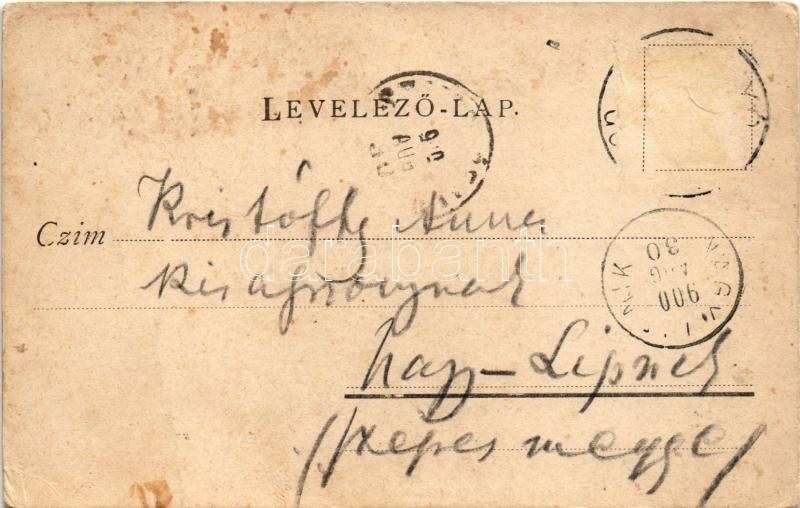 LEVELEZŐ-LAP.
Czim Kristóffy Anna
kisasszonynak
Nagy-Lipnik
/Szepes megye/
900
AUG
30
NAGY
NIK
AUG
darabanth